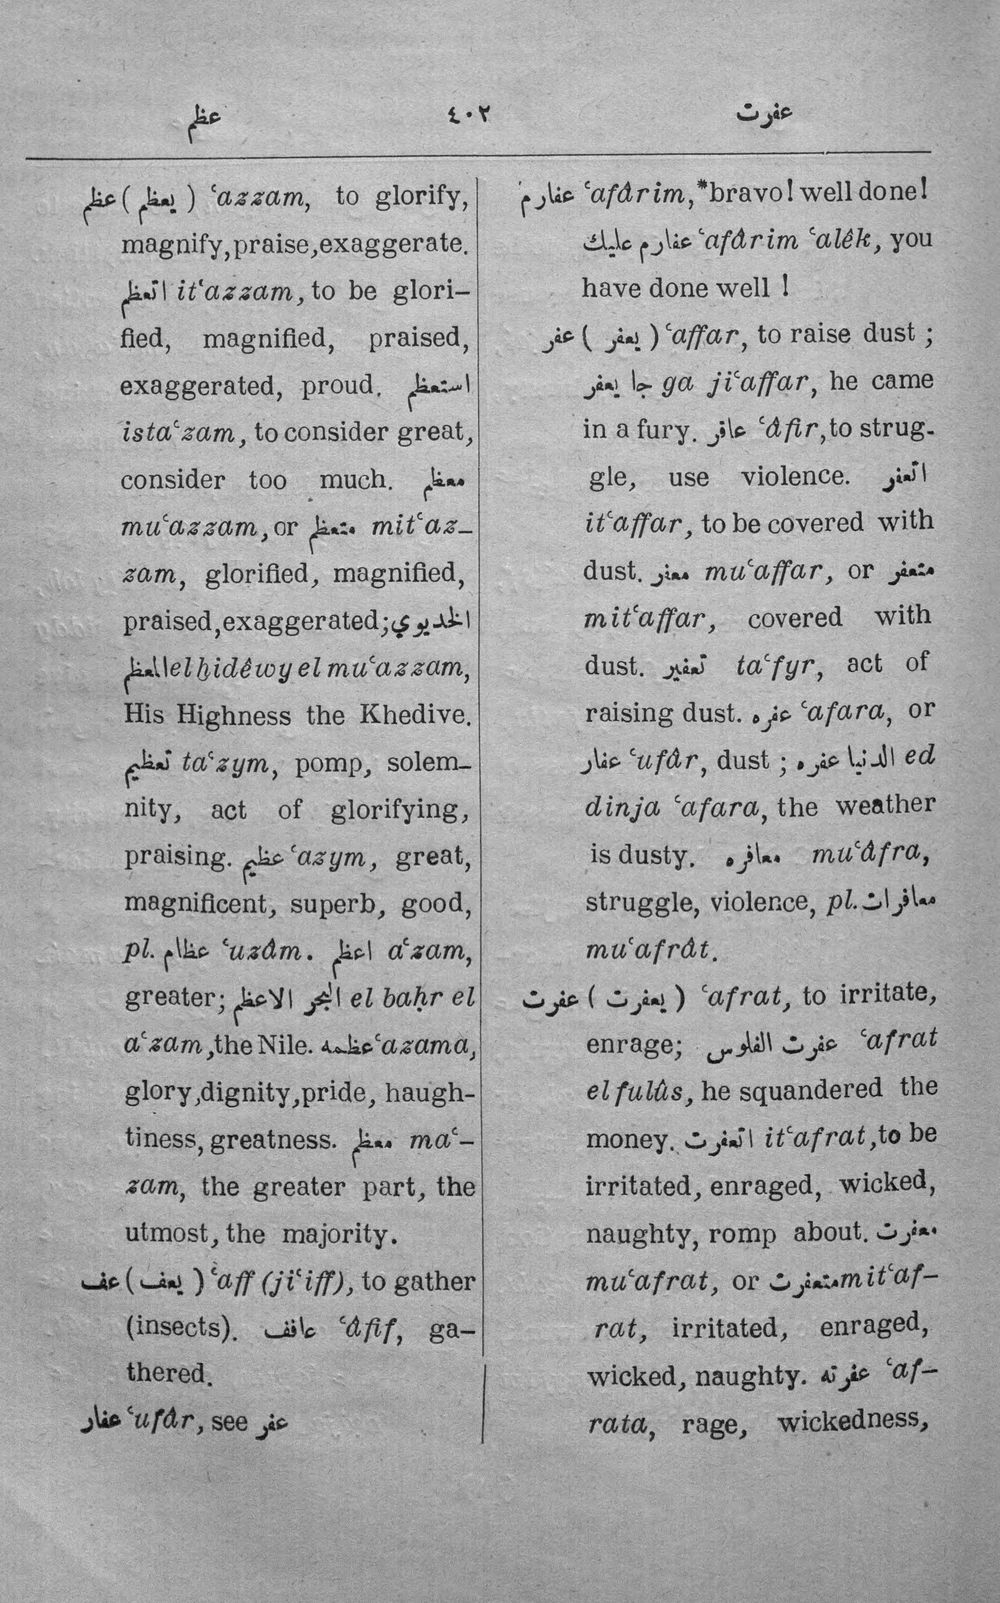 عظم ٤٠٢ عفرت
عظم ( يعظم ) ʿazzam, to glorify,
magnify, praise, exaggerate.
اتعظم itʿazzam, to be glori-
fied, magnified, praised,
exaggerated, proud. استعظم
istaʿzam, to consider great,
consider too much. معظم
muʿazzam, or متعظم mitʿaz-
zam, glorified, magnified,
praised, exaggerated; الخديوي
المعظم el ḫidêwy el muʿazzam,
His Highness the Khedive.
تعظيم taʿzym, pomp, solem-
nity, act of glorifying,
praising. عظيم ʿazym, great,
magnificent, superb, good,
pl. عظام ʿuzâm. اعظم aʿzam,
greater; البحر الاعظم el baḥr el
aʿzam, the Nile. عظمه ʿazama,
glory, dignity, pride, haugh-
tiness, greatness. معظم maʿ-
zam, the greater part, the
utmost, the majority.
عف ( يعف ) ʿaff (jiʿiff), to gather
(insects). عافف ʿâfif, ga-
thered.
عفار ʿufâr, see عفر
عفارم ʿafârim,*bravo! well done!
عفارم عليك ʿafârim ʿalêk, you
have done well !
عفر ( يعفر ) ʿaffar, to raise dust ;
جا يعفر ga jiʿaffar, he came
in a fury. عافر ʿâfir, to strug-
gle, use violence. اتعفر
itʿaffar, to be covered with
dust. معفر muʿaffar, or متعفر
mitʿaffar, covered with
dust. تعفير taʿfyr, act of
raising dust. عفره ʿafara, or
عفار ʿufâr, dust ; الدنيا عفره ed
dinja ʿafara, the weather
is dusty. معافره muʿâfra,
struggle, violence, pl. معافرات
muʿafrât.
عفرت ( يعفرت ) ʿafrat, to irritate,
enrage; عفرت الفلوس ʿafrat
el fulûs, he squandered the
money. اتعفرت itʿafrat, to be
irritated, enraged, wicked,
naughty, romp about. معفرت
muʿafrat, or متعفرت mitʿaf-
rat, irritated, enraged,
wicked, naughty. عفرته ʿaf-
rata, rage, wickedness,